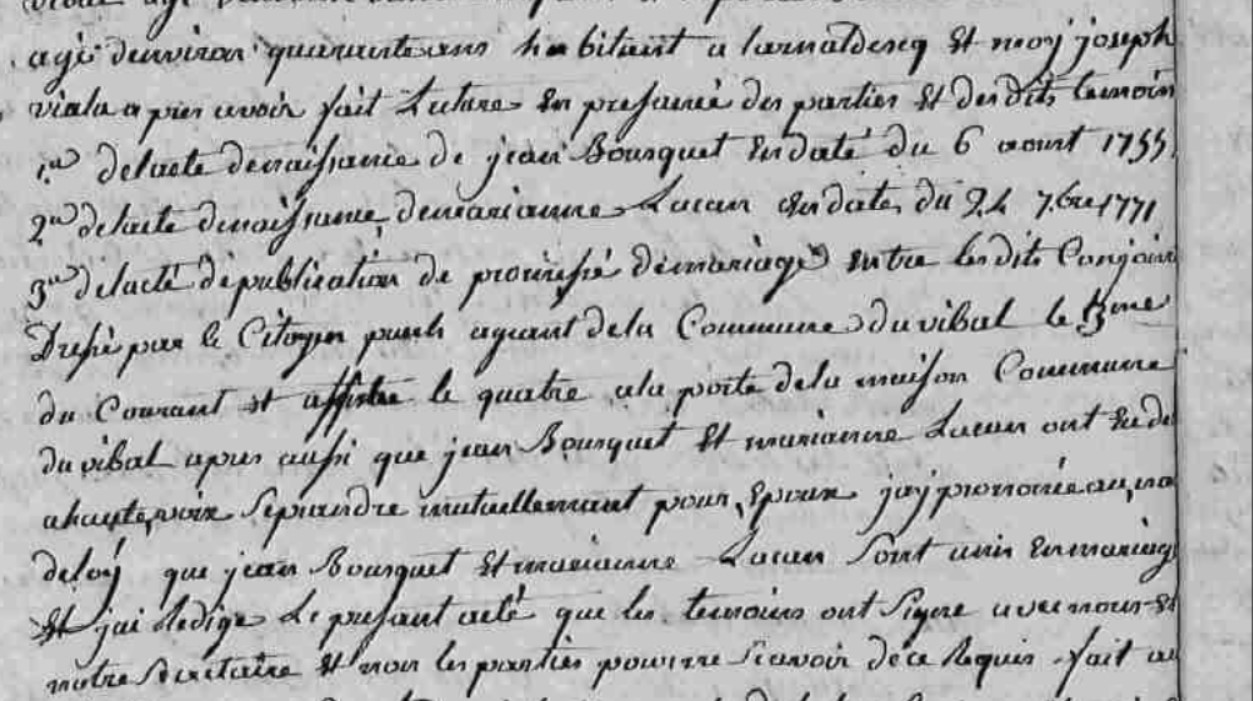 agé denviron quarante ans habitant a larnaldesq Et moy joseph
viala apres avoir fait Lecture En presance des parties Et des dits temoin
1er de lacte de naissance de jean Bousquet En daté du 6 aoust 1755
2em de lacte de naissance de marianne Lacan En date du 24 7bre 1771
3em de lacté de publication de promesse de mariage Entre les dits Conjoin
Dressé par le Citoyen agant de la Commune du vibal le
du Courant et affichée le quatre a la porte de la maison Commune
du vibal apres aussi que jean Bousquet Et marianne Lacan ont
a haute voix se prandre mutuellemant pour Epoux jay prononcé au no
de loy que jean Bousquet Et marianne Lacan sont unis En mariag
Et jai Redigé Le presant acté que les temoins ont signe avec nous et
notre Secretaire Et non les parties pour ne scavoir de ce Requis fait a